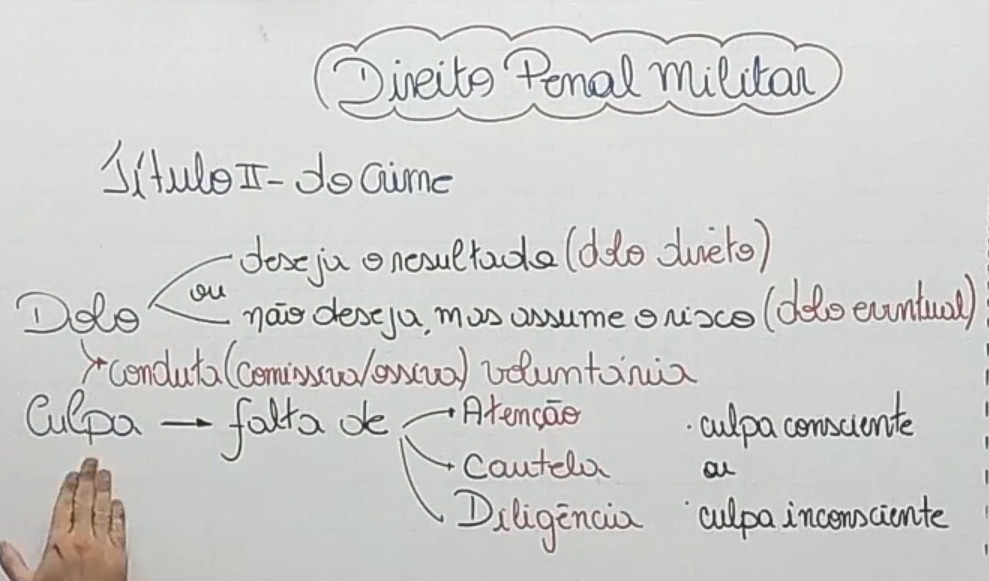 Direito Penal Militar
Título II - do Crime
deseja o resultado (dolo direto)
ou
Dolo
não deseja, mas assume o risco (dolo eventual)
conduta (comissiva/ossiva) voluntária
Culpa → falta de → Atenção · culpa consciente
Cautela ou
Diligência · culpa inconsciente